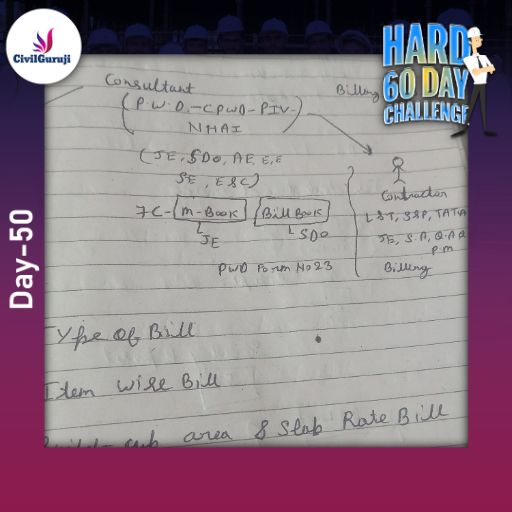 CivilGuruji
HARD
60 DAY
CHALLENGE
Day-50
Consultant
Billing
(P.W.D.-CPWD-PIV-
NHAI
(JE, SDO, AE, E,E
SE, ESC)
Contractor
7C-M-Book Bill Book
L&T, SSP, TATA
JE SDO
JE, S.A, Q.A.Q
P.M
PWD Form No 23
Billing
Type of Bill
Item wise Bill
area & Slab Rate Bill